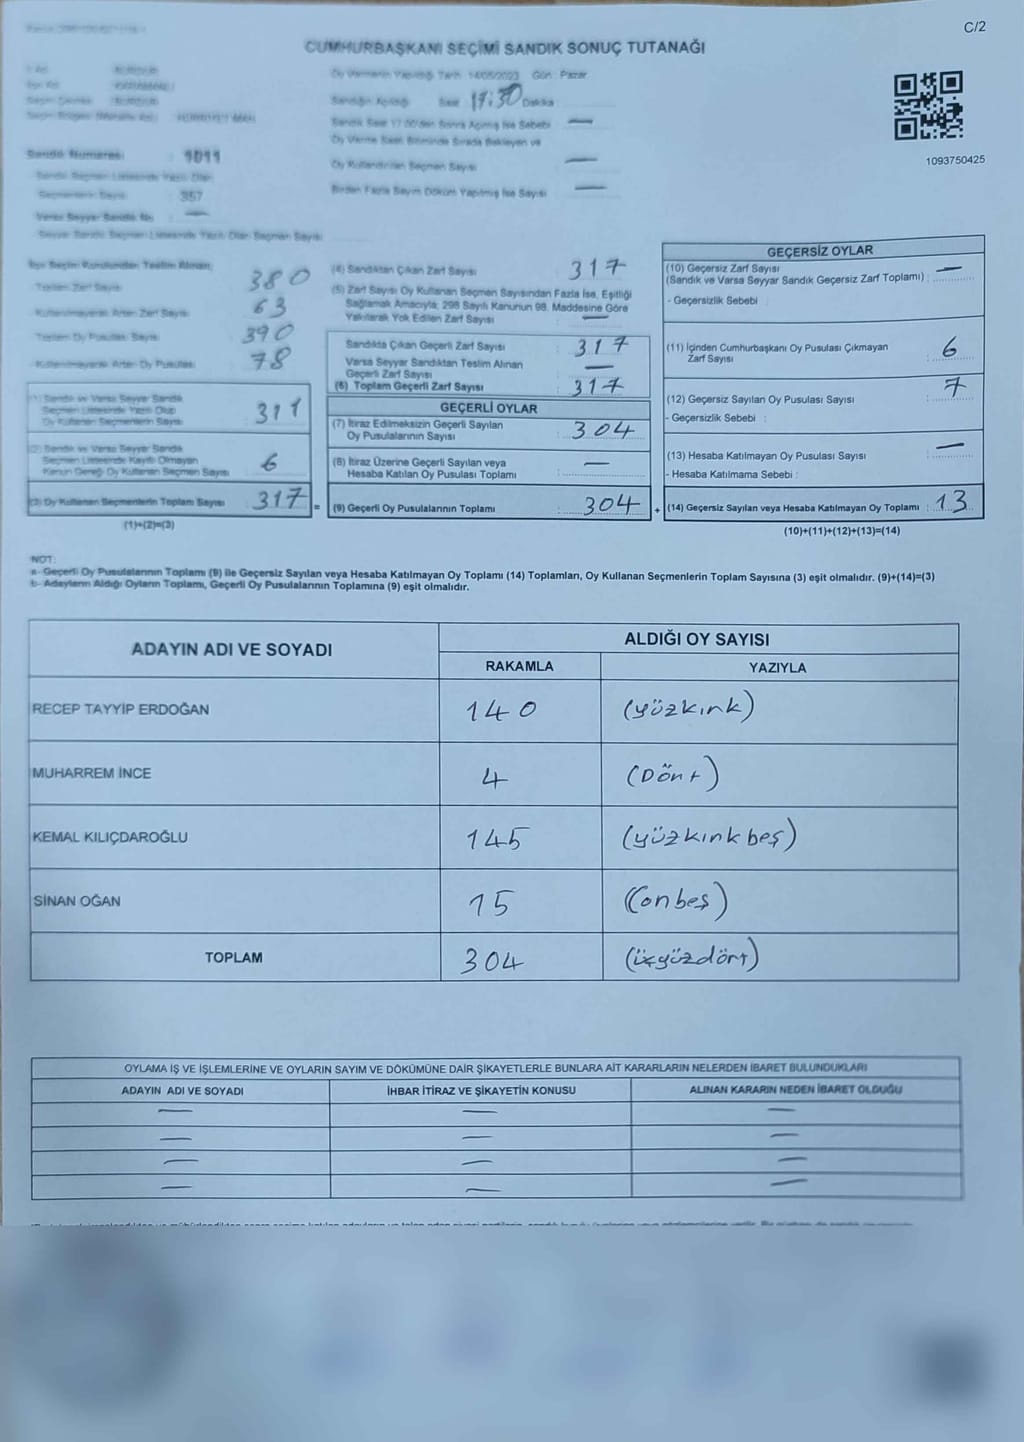 C/2
CUMHURBAŞKANI SEÇİMİ SANDIK SONUÇ TUTANAĞI
Oy Vermenin Yapıldığı Tarih 14/05/2023 Gün : Pazar
Sandığın Açıldığı Saat 17:30 Dakika
Sandık Saat 17.00'den Sonra Açılmış İse Sebebi —
Oy Verme Saati Bitiminde Sırada Bekleyen ve
Oy Kullandırılan Seçmen Sayısı —
Birden Fazla Sayım Döküm Yapılmış İse Sayısı —
1093750425
Sandık Numarası : 1011
Sandık Seçmen Listesinde Yazılı Olan
Seçmenlerin Sayısı : 357
Varsa Seyyar Sandık No : —
Seyyar Sandık Seçmen Listesinde Yazılı Olan Seçmen Sayısı
İlçe Seçim Kurulundan Teslim Alınan
Toplam Zarf Sayısı 380
Kullanılmayarak Artan Zarf Sayısı 63
Toplam Oy Pusulası Sayısı 390
Kullanılmayarak Artan Oy Pusulası 78
(1) Sandık ve Varsa Seyyar Sandık
Seçmen Listesinde Yazılı Olup
Oy Kullanan Seçmenlerin Sayısı 311
(2) Sandık ve Varsa Seyyar Sandık
Seçmen Listesinde Kayıtlı Olmayan
Kanun Gereği Oy Kullanan Seçmen Sayısı 6
(3) Oy Kullanan Seçmenlerin Toplam Sayısı 317 =
(1)+(2)=(3)
(4) Sandıktan Çıkan Zarf Sayısı : 317
(5) Zarf Sayısı Oy Kullanan Seçmen Sayısından Fazla İse, Eşitliği
Sağlamak Amacıyla; 298 Sayılı Kanunun 98. Maddesine Göre
Yakılarak Yok Edilen Zarf Sayısı : —
Sandıkta Çıkan Geçerli Zarf Sayısı : 317
Varsa Seyyar Sandıktan Teslim Alınan
Geçerli Zarf Sayısı : —
(6) Toplam Geçerli Zarf Sayısı : 317
GEÇERLİ OYLAR
(7) İtiraz Edilmeksizin Geçerli Sayılan
Oy Pusulalarının Sayısı : 304
(8) İtiraz Üzerine Geçerli Sayılan veya
Hesaba Katılan Oy Pusulası Toplamı : —
(9) Geçerli Oy Pusulalarının Toplamı : 304 +
GEÇERSİZ OYLAR
(10) Geçersiz Zarf Sayısı
(Sandık ve Varsa Seyyar Sandık Geçersiz Zarf Toplamı) : —
- Geçersizlik Sebebi :
(11) İçinden Cumhurbaşkanı Oy Pusulası Çıkmayan
Zarf Sayısı : 6
(12) Geçersiz Sayılan Oy Pusulası Sayısı : 7
- Geçersizlik Sebebi :
(13) Hesaba Katılmayan Oy Pusulası Sayısı : —
- Hesaba Katılmama Sebebi :
(14) Geçersiz Sayılan veya Hesaba Katılmayan Oy Toplamı : 13
(10)+(11)+(12)+(13)=(14)
NOT:
a- Geçerli Oy Pusulalarının Toplamı (9) ile Geçersiz Sayılan veya Hesaba Katılmayan Oy Toplamı (14) Toplamları, Oy Kullanan Seçmenlerin Toplam Sayısına (3) eşit olmalıdır. (9)+(14)=(3)
b- Adayların Aldığı Oyların Toplamı, Geçerli Oy Pusulalarının Toplamına (9) eşit olmalıdır.
ADAYIN ADI VE SOYADI ALDIĞI OY SAYISI
RAKAMLA YAZIYLA
RECEP TAYYİP ERDOĞAN 140 (yüzkırk)
MUHARREM İNCE 4 (Dört)
KEMAL KILIÇDAROĞLU 145 (yüzkırk beş)
SİNAN OĞAN 15 (onbeş)
TOPLAM 304 (üçyüzdört)
OYLAMA İŞ VE İŞLEMLERİNE VE OYLARIN SAYIM VE DÖKÜMÜNE DAİR ŞİKAYETLERLE BUNLARA AİT KARARLARIN NELERDEN İBARET BULUNDUKLARI
ADAYIN ADI VE SOYADI İHBAR İTİRAZ VE ŞİKAYETİN KONUSU ALINAN KARARIN NEDEN İBARET OLDUĞU
— — —
— — —
— — —
— — —